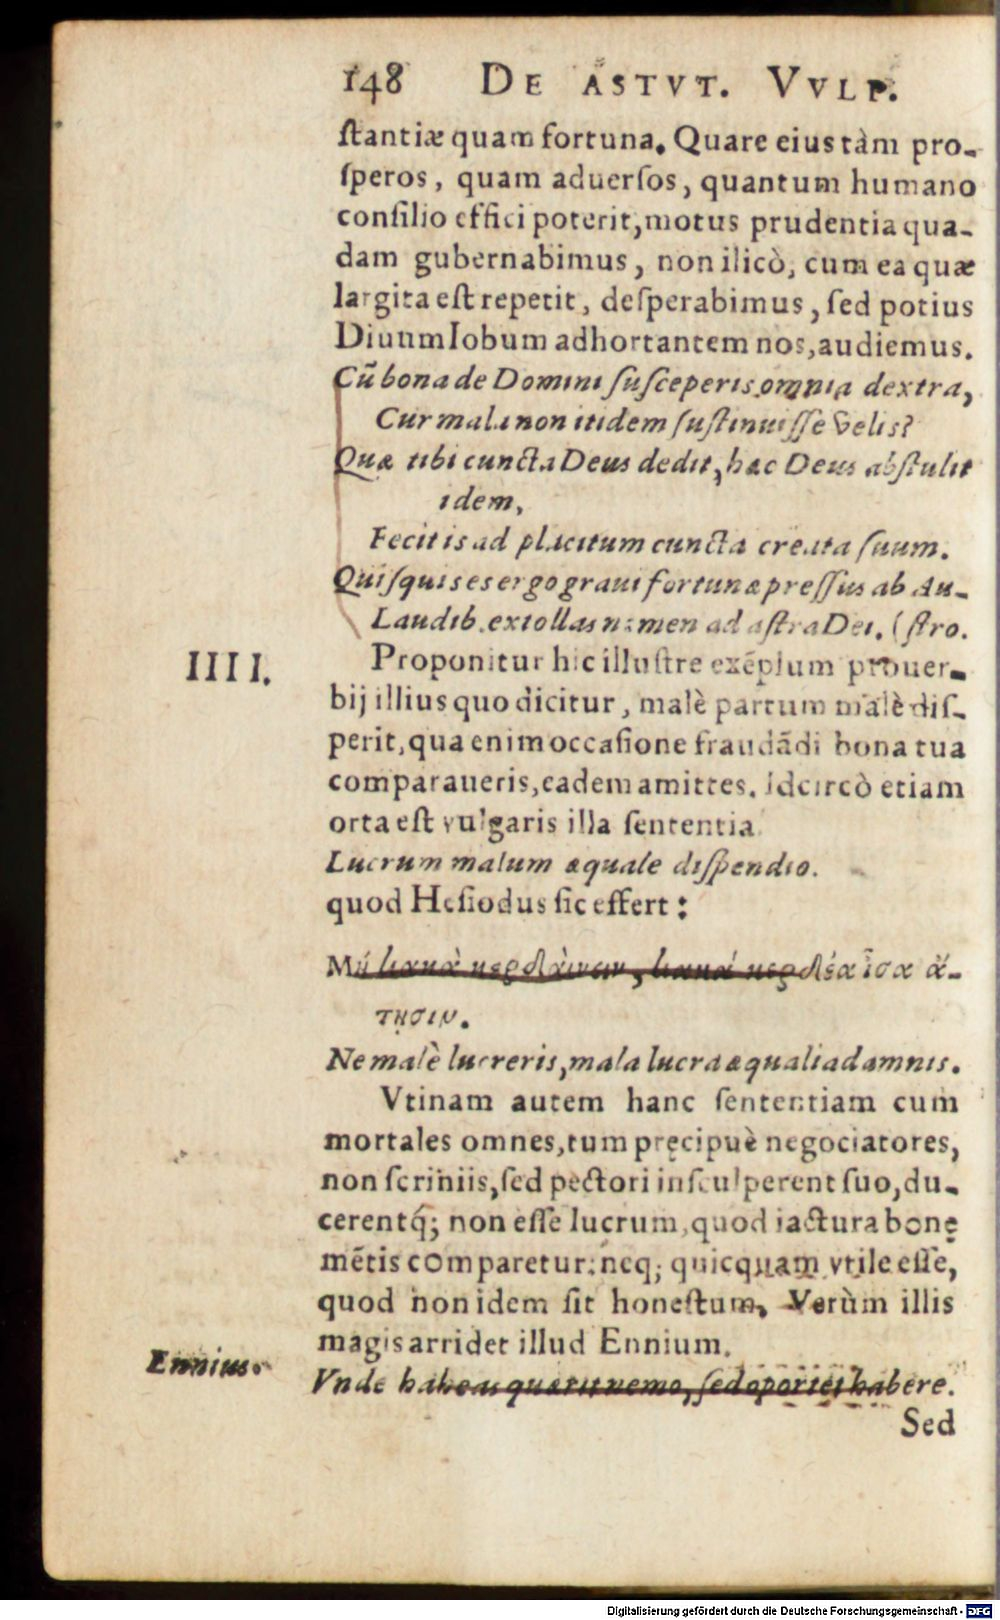 148 DE ASTVT. VVLP.
ſtantiæ quam fortuna. Quare eius tàm pro-
ſperos, quam aduerſos, quantum humano
conſilio effici poterit, motus prudentia qua-
dam gubernabimus, non ilicò, cum ea quæ
largita eſt repetit, deſperabimus, ſed potius
Diuum Iobum adhortantem nos, audiemus.
Cũ bona de Domini ſuſceperis omnia dextra,
Cur mala non itidem ſuſtinuiſſe velis?
Quæ tibi cuncta Deus dedit, hæc Deus abſtulit
idem,
Fecit is ad placitum cuncta creata ſuum.
Quiſquis es ergo graui fortunæ preſſus ab Au-
Laudib. extollas nomen ad aſtra Dei. (ſtro.
IIII. Proponitur hic illuſtre exẽplum prouer-
bij illius quo dicitur, malè partum malè diſ-
perit, qua enim occaſione fraudãdi bona tua
comparaueris, eadem amittes. Idcircò etiam
orta eſt vulgaris illa ſententia
Lucrum malum æquale diſpendio.
quod Heſiodus ſic effert:
Μὴ κακὰ κερδαίνειν, κακὰ κερδέα ἶσα ἄ-
τησιν.
Ne malè lucreris, mala lucra æqualia damnis.
Vtinam autem hanc ſententiam cum
mortales omnes, tum pręcipuè negociatores,
non ſcriniis, ſed pectori inſculperent ſuo, du-
cerentq́; non eſſe lucrum, quod iactura bonę
mẽtis comparetur: neq; quicquam vtile eſſe,
quod non idem ſit honeſtum. Verùm illis
magis arridet illud Ennium.
Ennius.
Vnde habeas quærit nemo, ſed oportet habere.
Sed
Digitalisierung gefördert durch die Deutsche Forschungsgemeinschaft - DFG